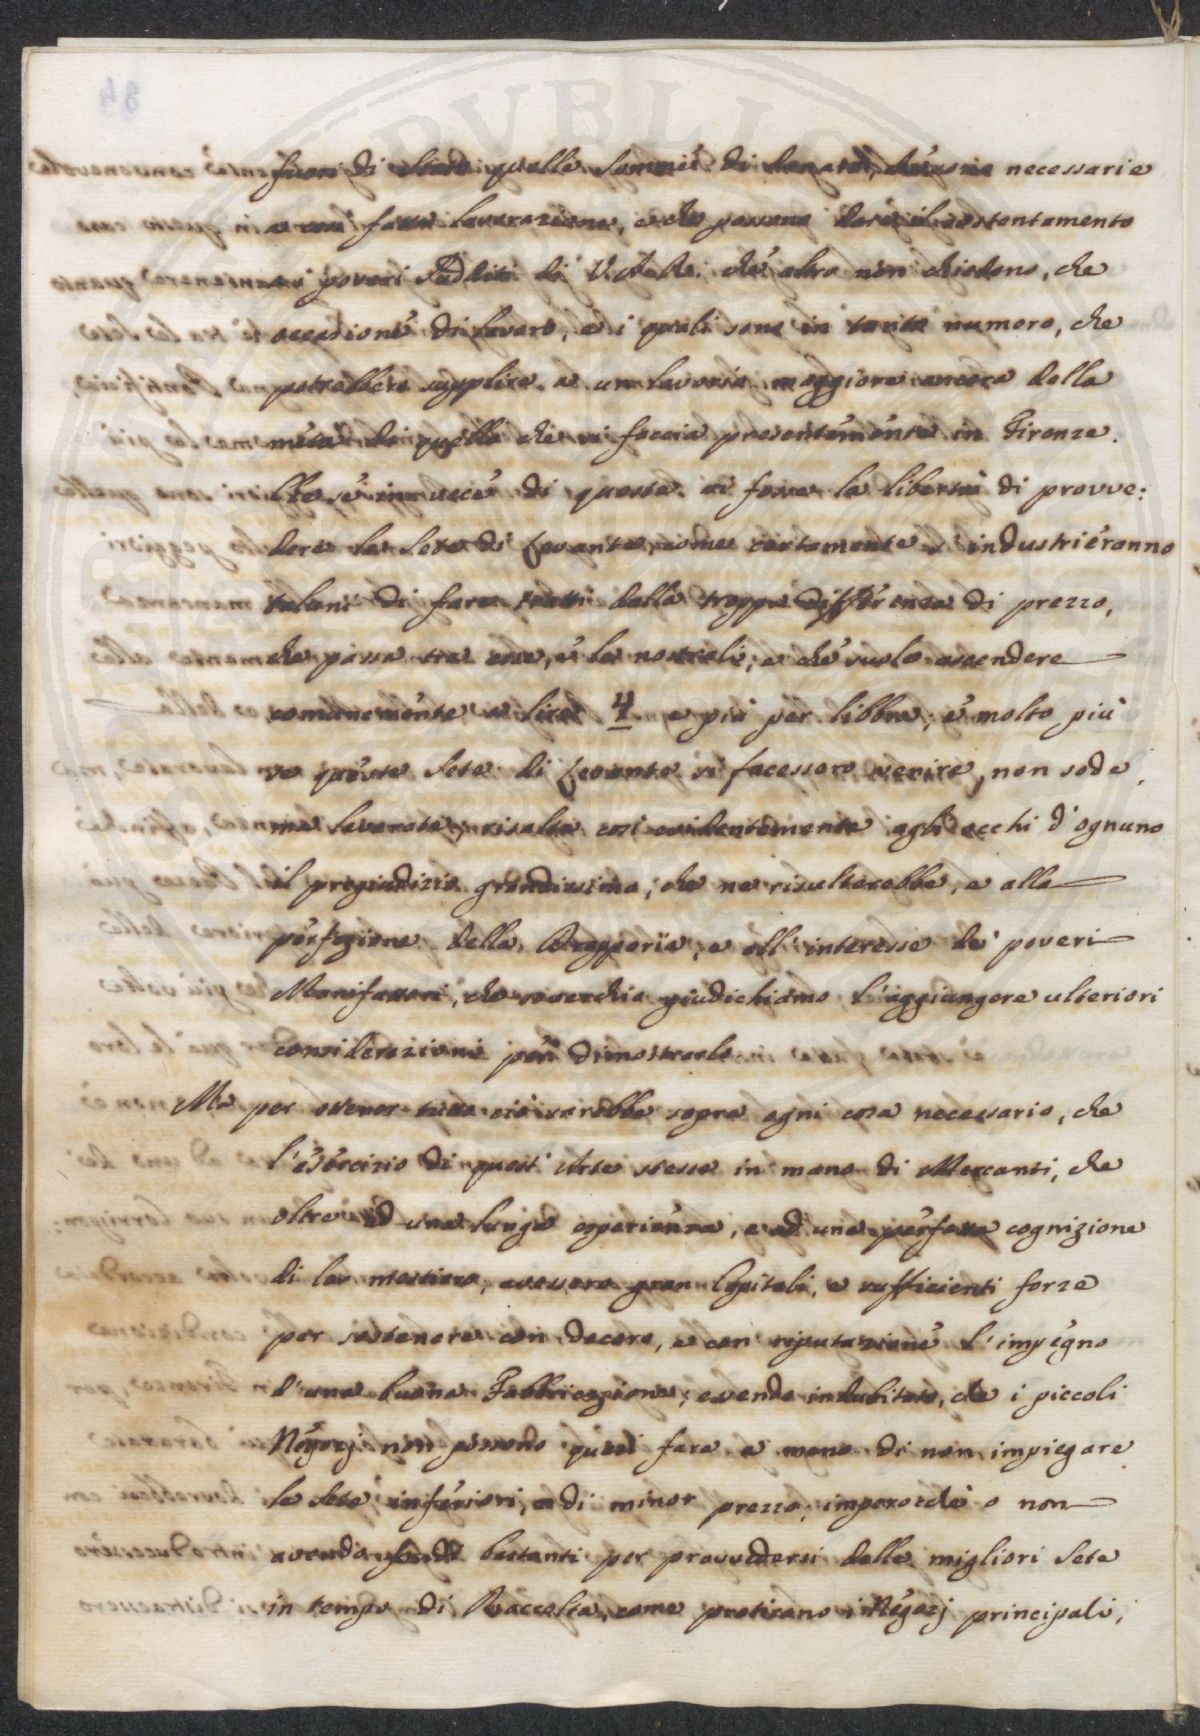 fuori di Stato quelle somme di denaro, che sono necessarie
a una forte lavorazione, e che possono dare il sostentamento
ai poveri Sudditi di V. A. R. che altro non chiedono, che
occasione di lavoro, e i quali sono in tanto numero, che
potrebbero supplire a un lavorio maggiore ancora della
metà di quello che si faccia presentemente in Firenze.
Che se in vece di questa si fosse la libertà di provve:
dere le Sete di Levante, come certamente s'industrieranno
taluni di fare tratti dalla troppa differenza di prezzo,
che passa tra esse, e le nostrali, e che suole ascendere
comunemente a lire 4. e più per libbra; e molto più
se queste Sete di Levante si facessero venire, non sode,
ma lavorate, risalta così evidentemente agli occhi d'ognuno
il pregiudizio grandissimo, che ne risulterebbe, e alla
perfezione della Drapperia, e all'interesse de' poveri
Manifattori, che soverchio giudichiamo l'aggiungere ulteriori
considerazioni per dimostrarlo.
Ma per ottener tutto ciò sarebbe sopra ogni cosa necessario, che
l'esercizio di quest'Arte stesse in mano di Mercanti, che
oltre ad una lunga esperienza, e ad una perfetta cognizione
di lor mestiero, avessero gran Capitali, e sufficienti forze
per sostenere con decoro, e con riputazione l'impegno
d'una buona Fabbricazione; essendo indubitato, che i piccoli
Negozj non possono quasi fare a meno di non impiegare
le Sete inferiori, e di minor prezzo; imperocchè o non
avendo fondi bastanti per provvedersi delle migliori Sete
in tempo di Raccolta, come praticano i Negozj principali,